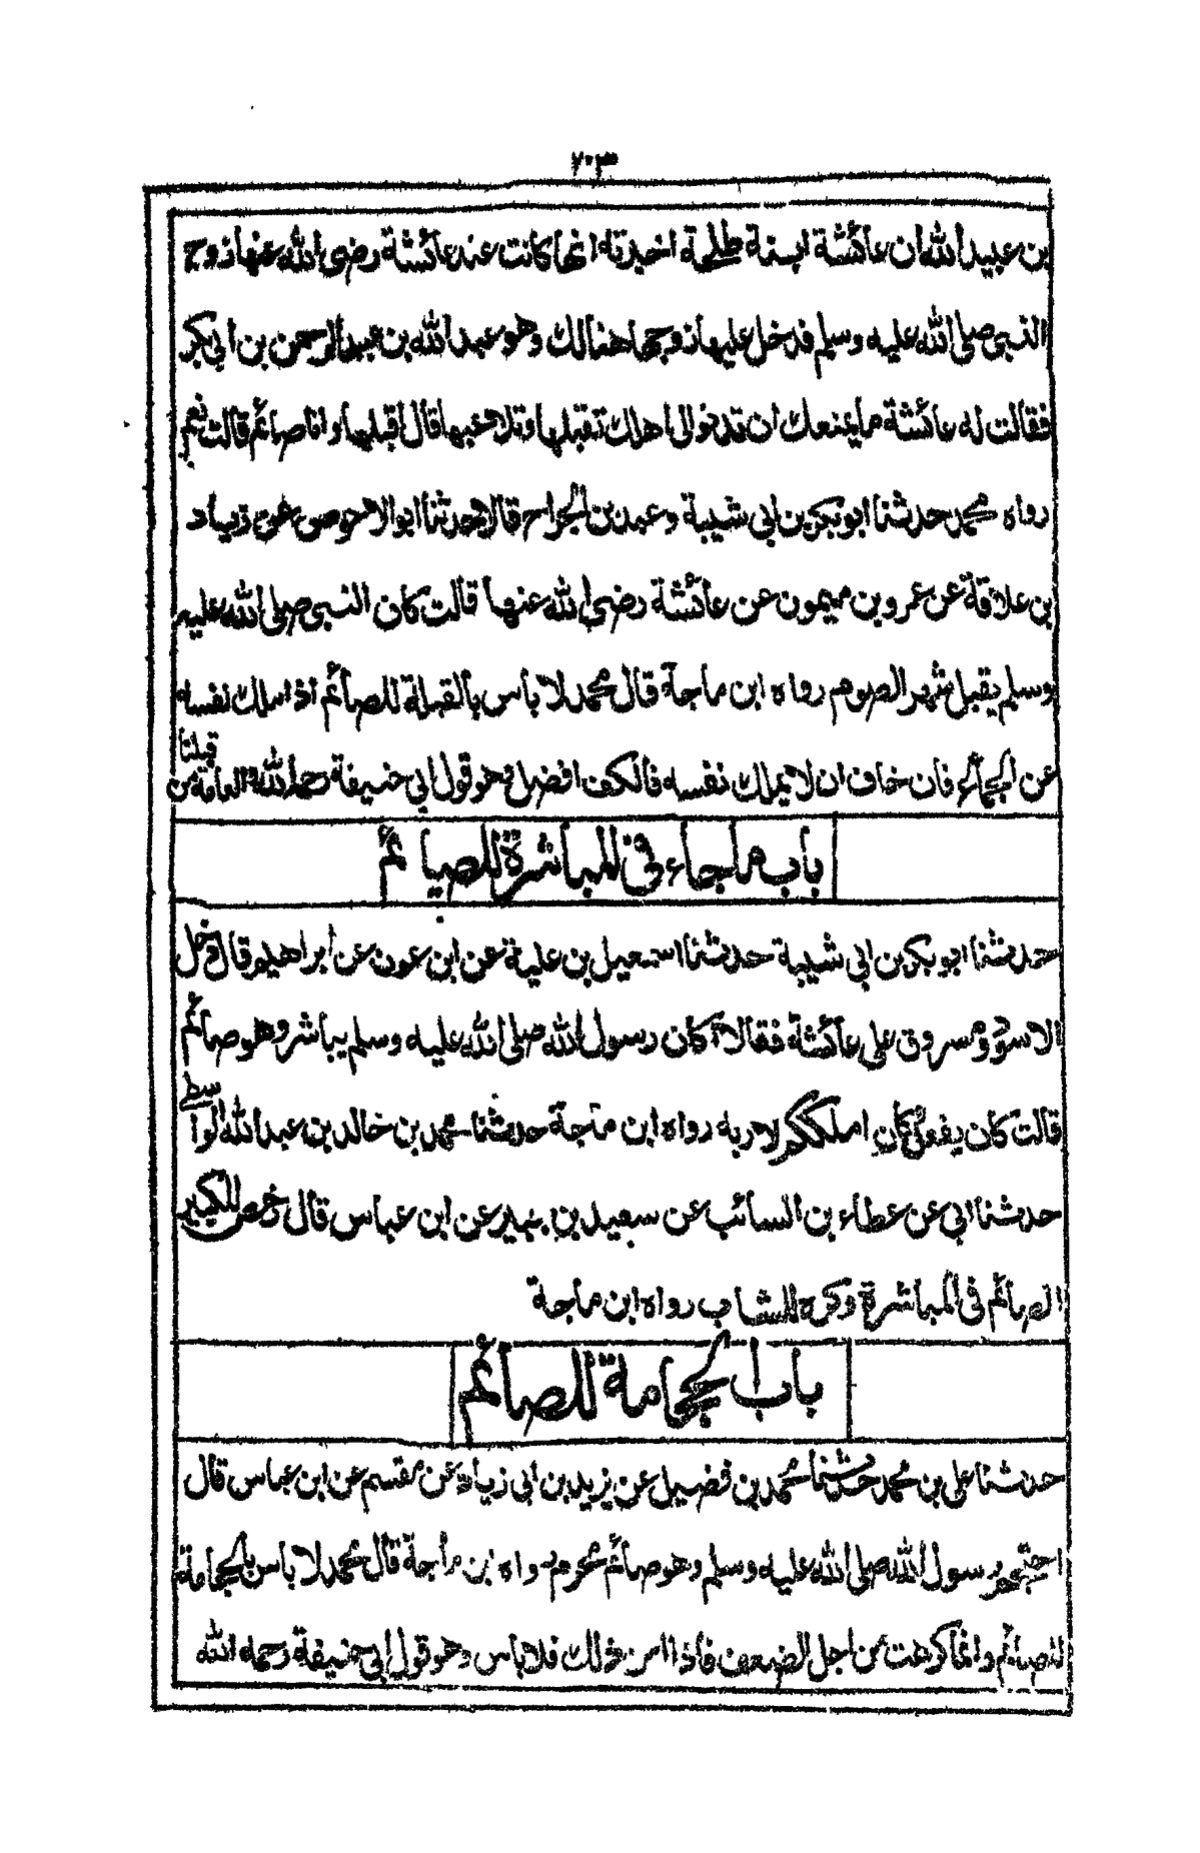 ٢٠٣
بن عبيد الله ان عائشة ابنة طلحة اخبرته انها كانت عند عائشة رضى الله عنها زوج
النبى صلى الله عليه وسلم فدخل عليها زوجها هنالك وهو عبد الله بن عبد الرحمن بن ابى بكر
فقالت له عائشة ما يمنعك ان تدنو الى اهلك تقبلها وتلاعبها قال اقبلها وانا صائم قالت نعم
رواه محمد حدثنا ابو بكر بن ابى شيبة و عبد بن الجراح قالا حدثنا ابو الاحوص عن زياد
بن علاقة عن عمرو بن ميمون عن عائشة رضى الله عنها قالت كان النبى صلى الله عليه
وسلم يقبل شهر الصوم رواه ابن ماجة قال محمد لا باس بالقبلة للصائم اذا املك نفسه
عن الجماع فان خاف ان لا يملك نفسه فالكف افضل وهو قول ابى حنيفة رحمه الله والعامة من قبلنا
باب ما جاء فى المباشرة للصيائم
حدثنا ابو بكر بن ابى شيبة حدثنا اسمعيل بن علية عن ابن عون عن ابراهيم قال دخل
الاسود ومسروق على عائشة فقالا اكان رسول الله صلى الله عليه وسلم يباشر وهو صائم
قالت كان يفعل وكان املككم لاربه رواه ابن ماجة حدثنا محمد بن خالد بن عبد الله الواسطى
حدثنا ابى عن عطاء بن السائب عن سعيد بن جبير عن ابن عباس قال رخص للكبير
الصائم فى المباشرة وكره للشاب رواه ابن ماجة
باب الحجامة للصائم
حدثنا على بن محمد حدثنا محمد بن فضيل عن يزيد بن ابى زياد عن مقسم عن ابن عباس قال
احتجم رسول الله صلى الله عليه وسلم وهو صائم محرم رواه ابن ماجة قال محمد لا باس بالحجامة
للصائم وانما كرهت من اجل الضعف فاذا امن ذلك فلا باس وهو قول ابى حنيفة رحمه الله